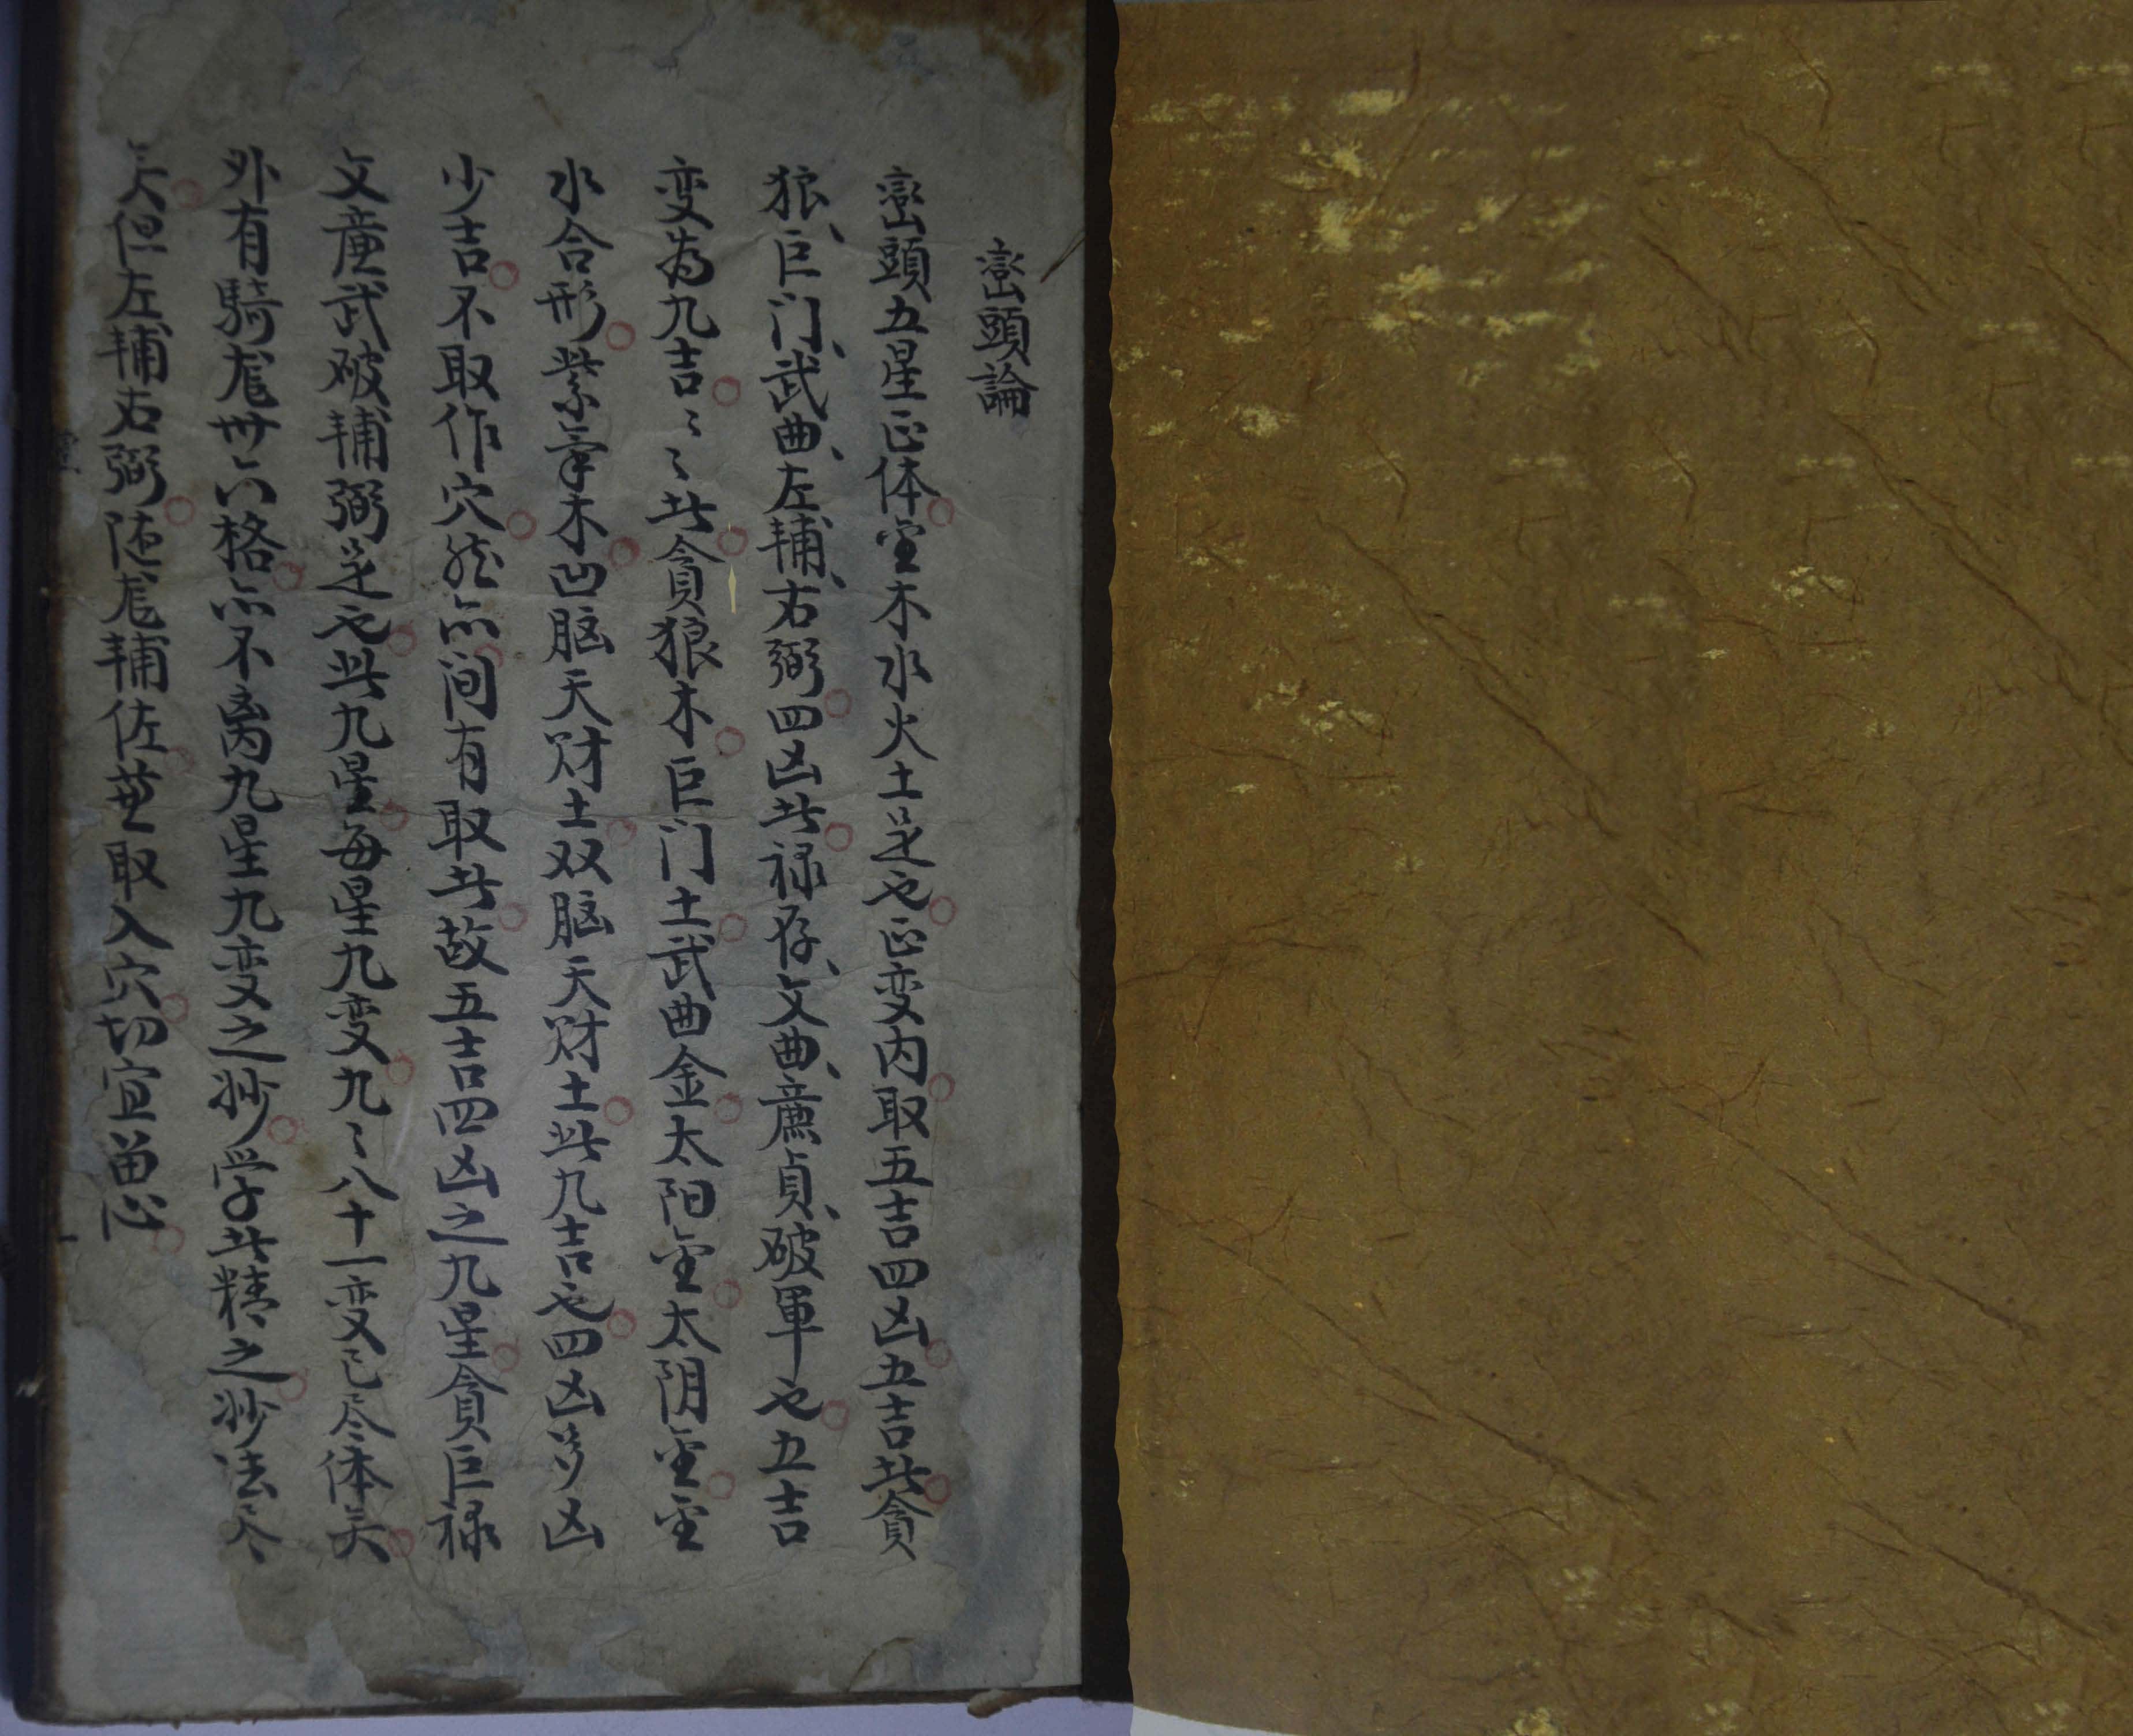 巒頭論
巒頭五星正体金木水火土是也正变内取五吉四凶五吉此貪
狼巨门武曲左輔右弼四凶此禄存文曲廉貞破軍也五吉
变为九吉〻〻此貪狼木巨门土武曲金太阳金太阴金金
水合形紫氣木凹脑天财土双脑天财土此九吉也四凶多凶
少吉不取作穴然亦间有取此故五吉四凶之九星貪巨禄
文廉武破輔弼是也此九星每星九变九〻八十一变已尽体矣
外有騎龙卅六格亦不离九星九变之妙学此精之妙法尽
矣但左輔右弼随龙輔佐莫取入穴切宜留心